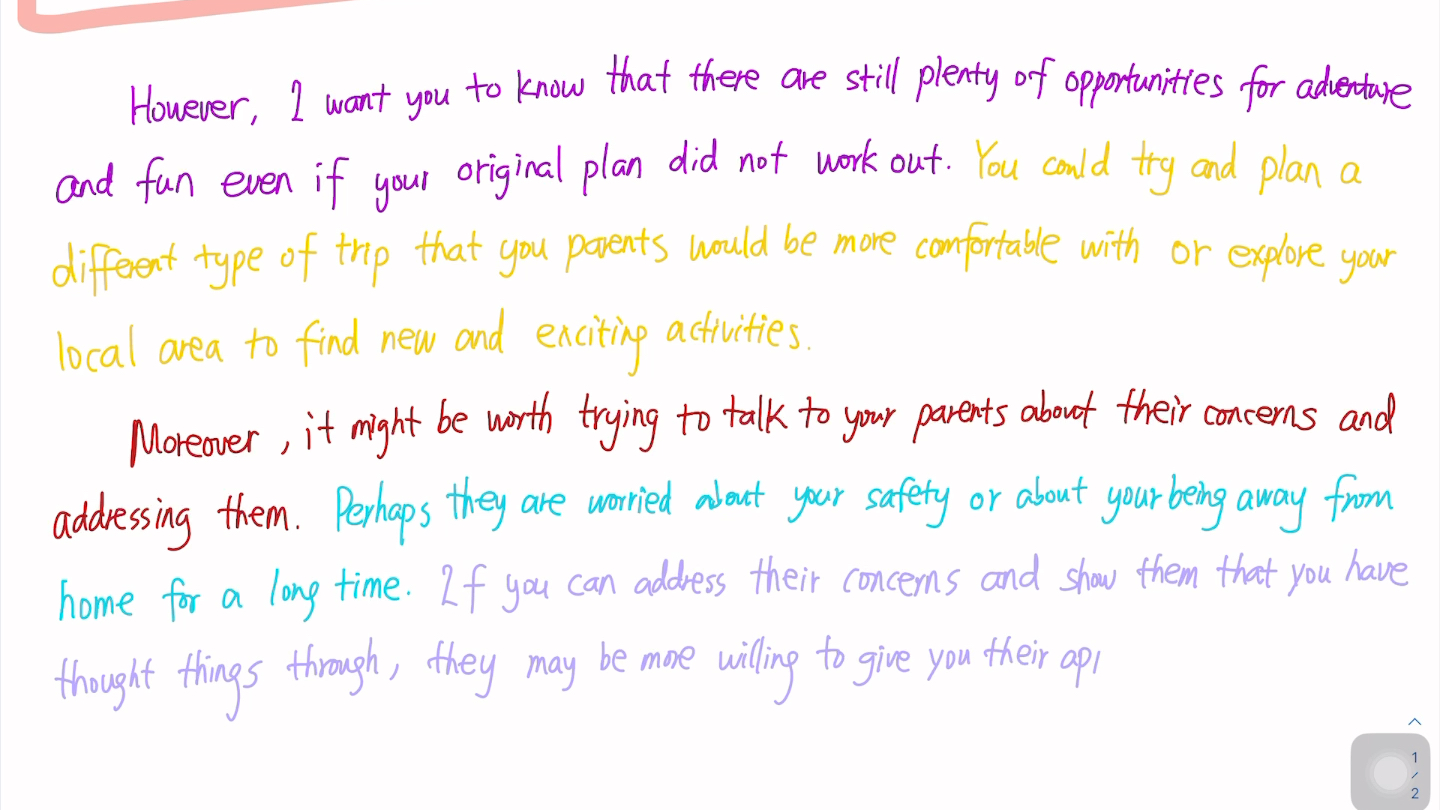 However, I want you to know that there are still plenty of opportunities for adventure
and fun even if your original plan did not work out. You could try and plan a
different type of trip that you parents would be more comfortable with or explore your
local area to find new and exciting activities.
Moreover, it might be worth trying to talk to your parents about their concerns and
addressing them. Perhaps they are worried about your safety or about your being away from
home for a long time. If you can address their concerns and show them that you have
thought things through, they may be more willing to give you their
1/2